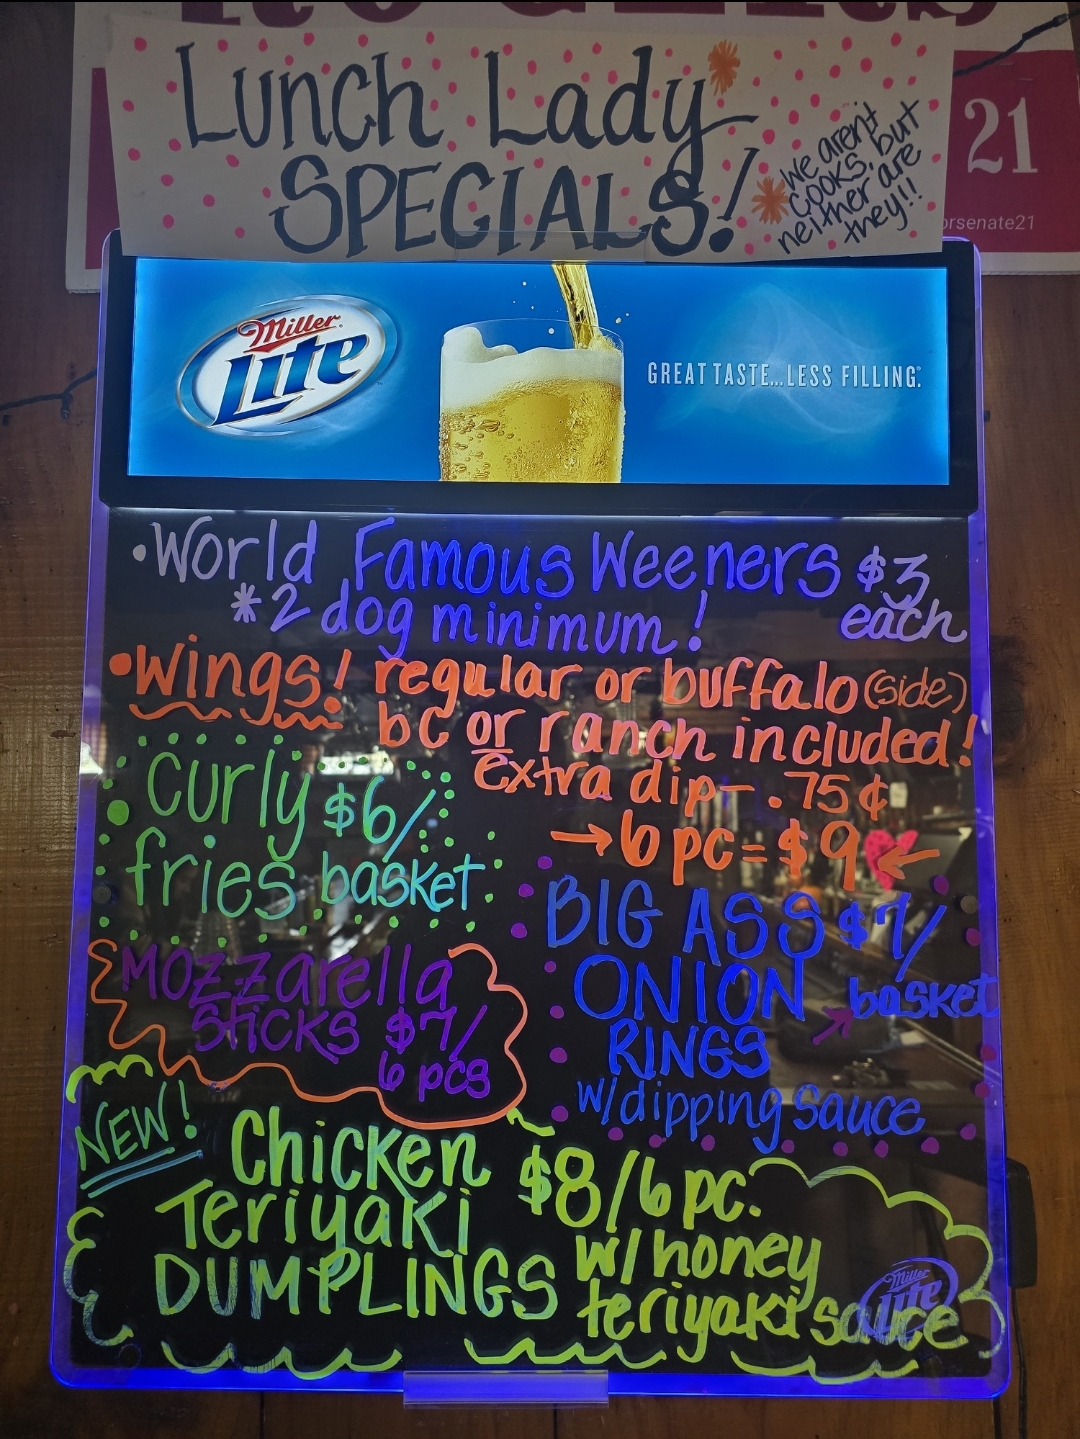 Lunch Lady*
SPECIALS!
* We aren't
cooks, but
neither are
they!!!
21
orsenate21
Miller
Lite
GREAT TASTE...LESS FILLING.
•World Famous Weeners $3
*2 dog minimum! each
•Wings! regular or buffalo (side)
bc or ranch included!
extra dip- .75¢
→6 pc = $9 ←
Curly $6/
fries basket
BIG ASS $7/
ONION basket
RINGS
w/dipping sauce
Mozzarella
Sticks $7/
6 pcs
NEW!
Chicken $8/6 pc.
Teriyaki w/honey
DUMPLINGS teriyaki sauce
Miller
Lite